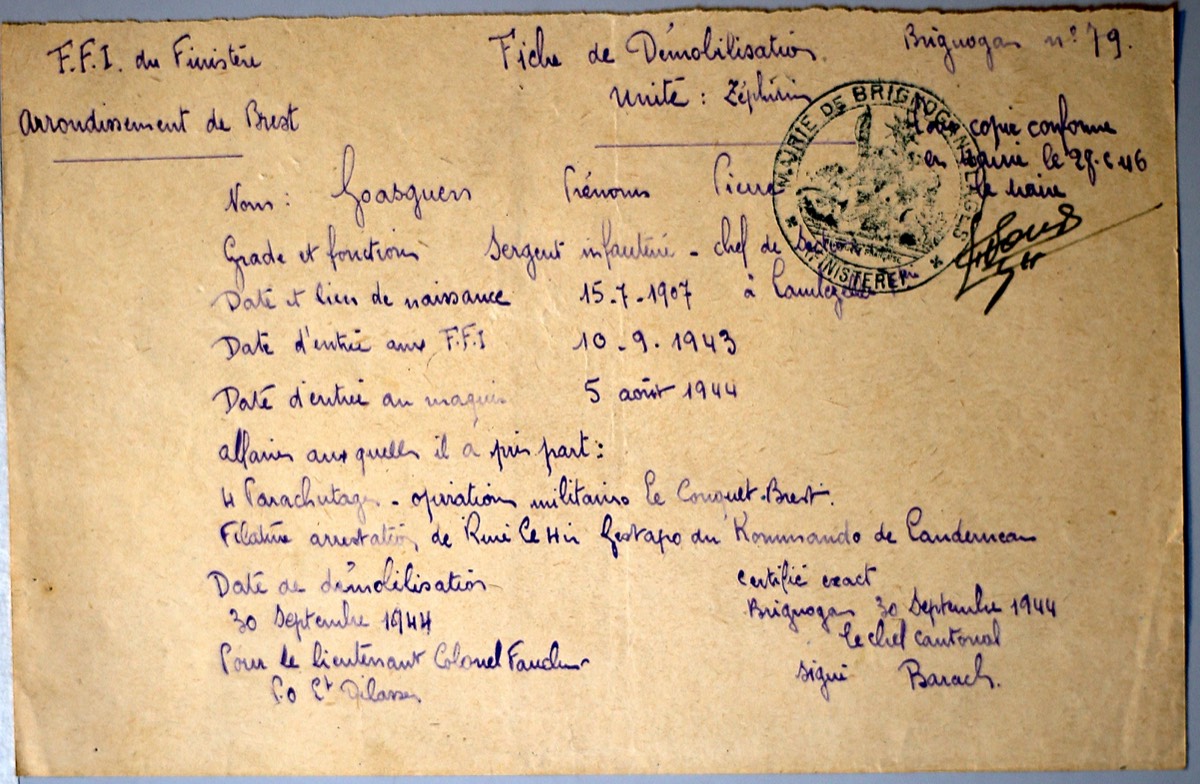 F.F.I. du Finistère
Fiche de Démobilisation
Brignogan n° 79.
Arrondissement de Brest
Unité : Zéphirin
MAIRIE DE BRIGNOGAN-PLAGES
FINISTERE
copie conforme
en Mairie le 29-5-46
le Maire
Nom : Goasguen Prénoms Pierre
Grade et fonction Sergent infanterie - chef de Section
Date et lieu de naissance 15-7-1907 à
Date d'entrée aux F.F.I 10-9-1943
Date d'entrée au maquis 5 août 1944
affaires auxquelles il a pris part :
4 Parachutages - opérations militaires Le Conquet-Brest.
Filature arrestation de René Le Hir Gestapo du Kommando de Landerneau
Date de démobilisation
30 Septembre 1944
Certifié exact
Brignogan 30 Septembre 1944
le chef cantonal
Pour le lieutenant Colonel Faucher
P.O Ct Dilasser
signé Barach.